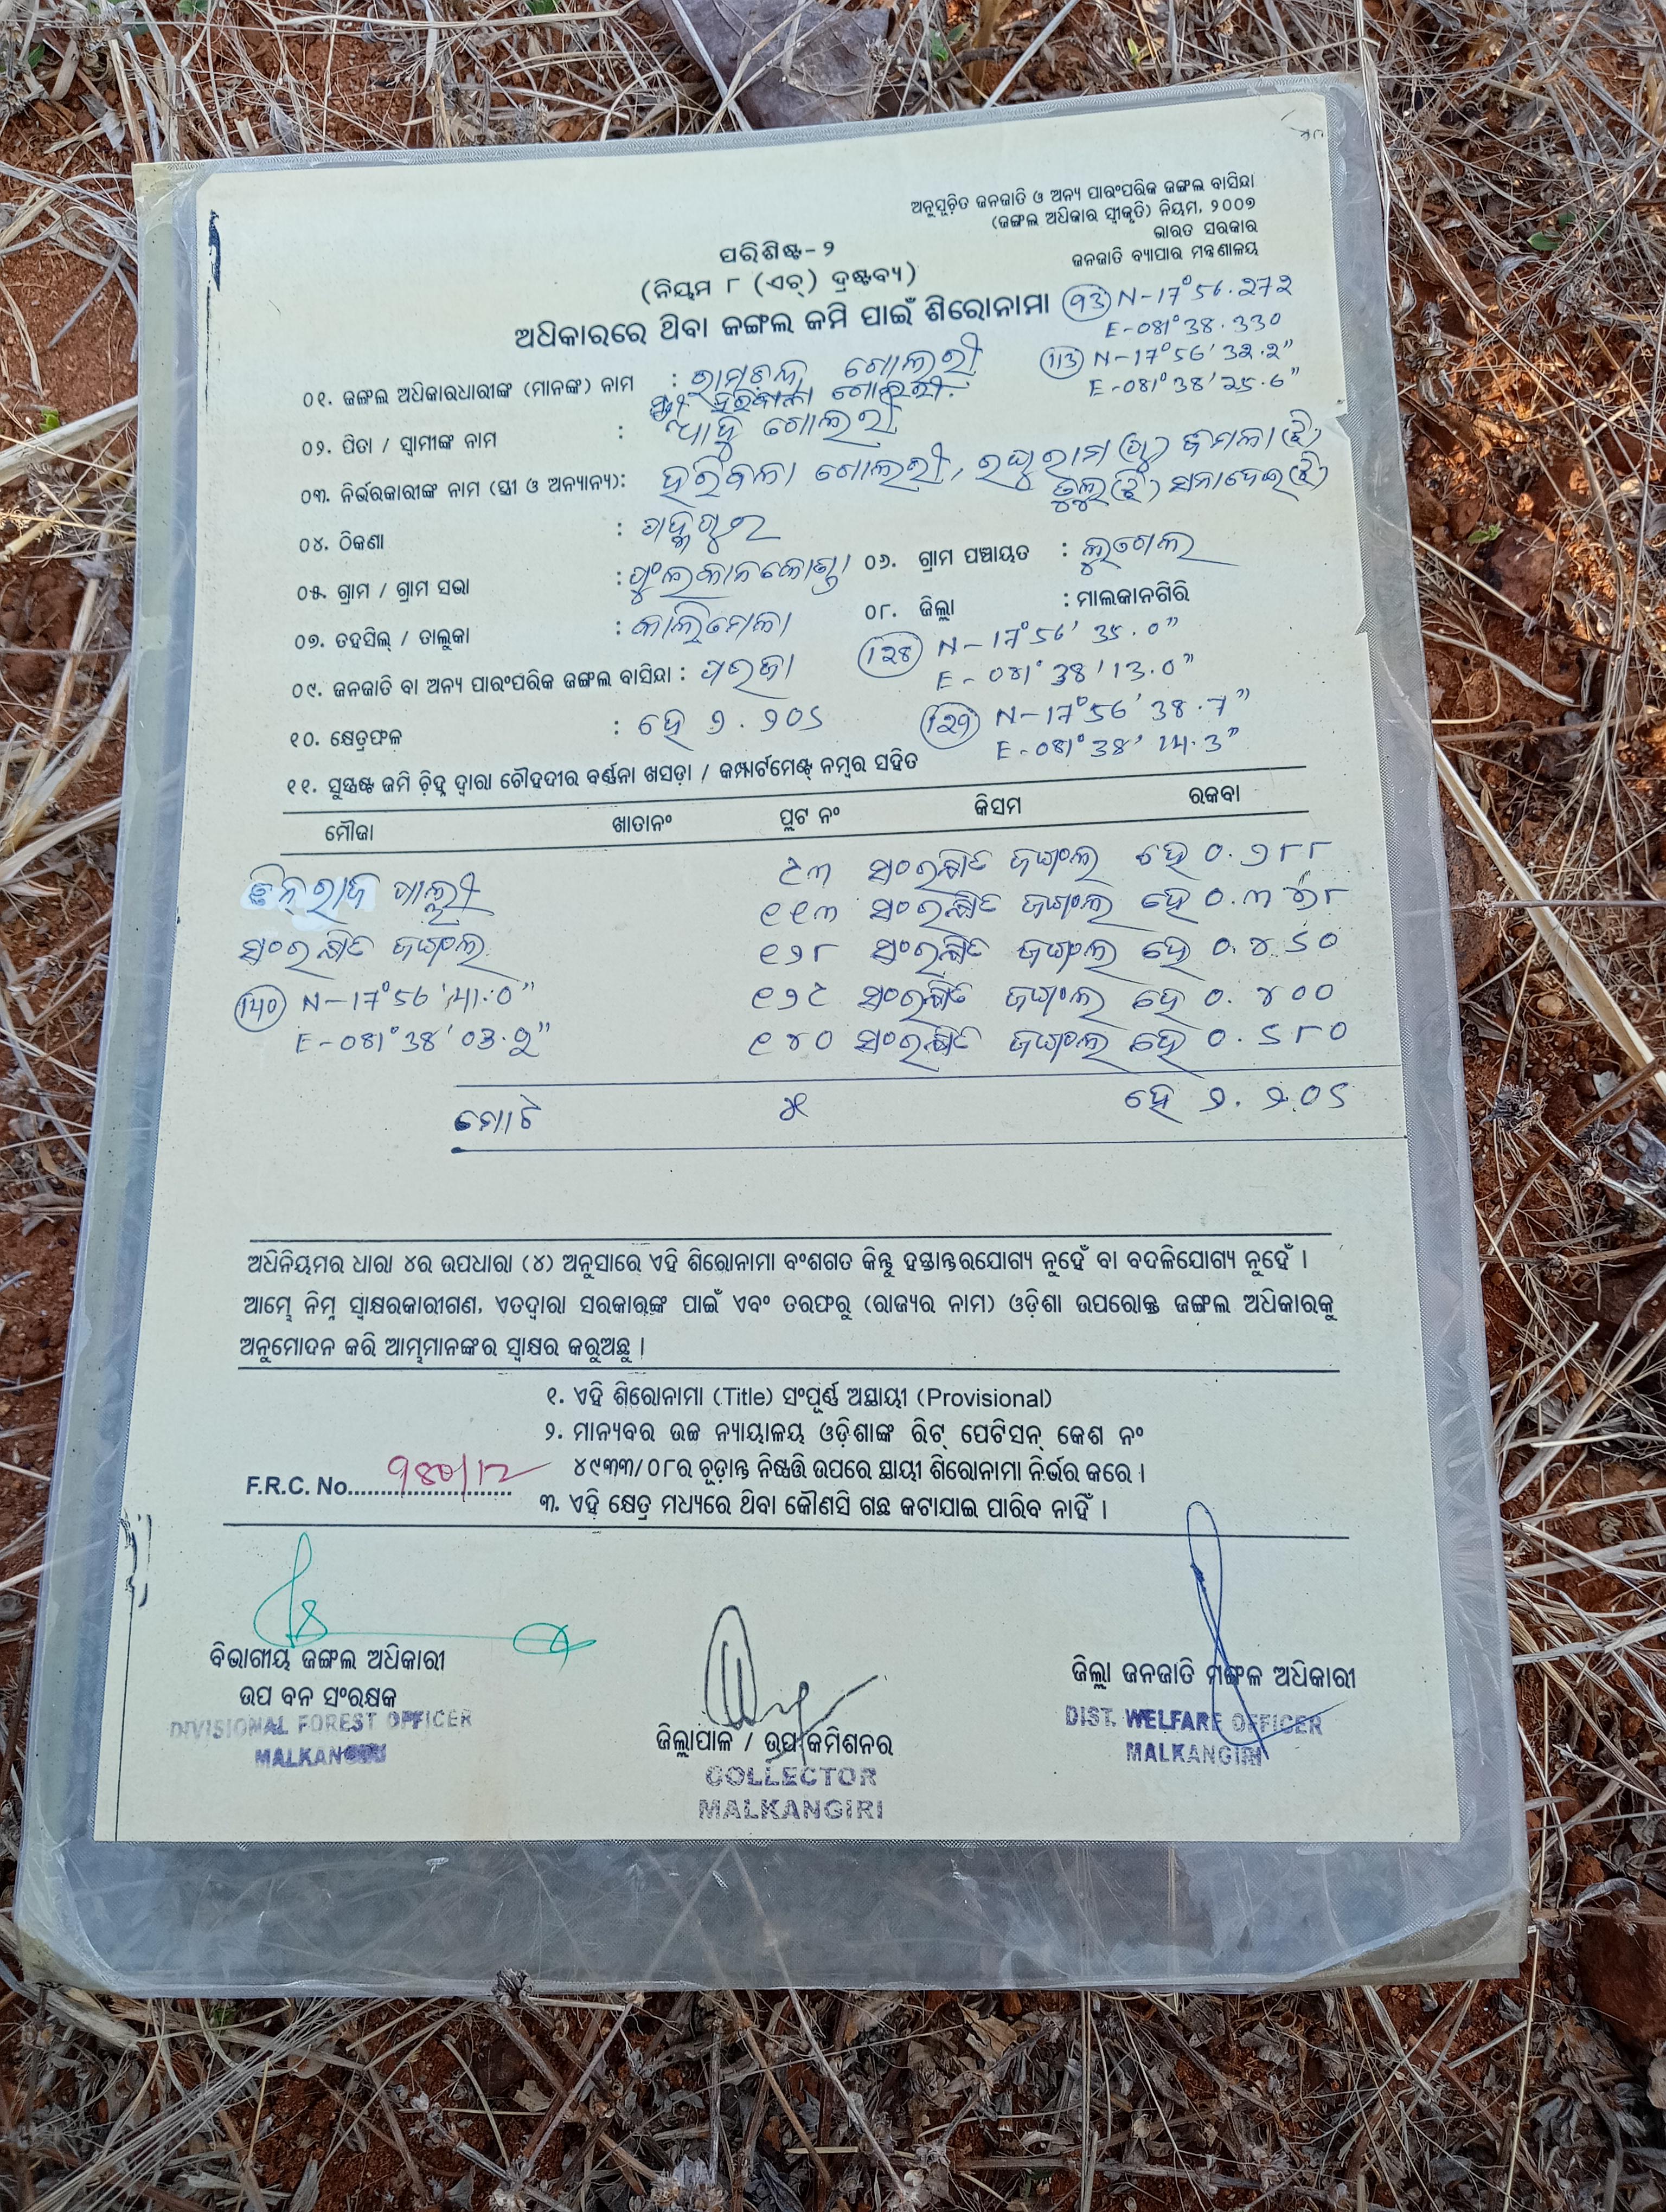 ଅନୁସୂଚିତ ଜନଜାତି ଓ ଅନ୍ୟ ପାରଂପରିକ ଜଙ୍ଗଲ ବାସିନ୍ଦା
(ଜଙ୍ଗଲ ଅଧିକାର ସ୍ୱୀକୃତି) ନିୟମ, ୨୦୦୭
ଭାରତ ସରକାର
ଜନଜାତି ବ୍ୟାପାର ମନ୍ତ୍ରଣାଳୟ
ପରିଶିଷ୍ଟ-୨
(ନିୟମ ୮ (ଏଚ୍) ଦ୍ରଷ୍ଟବ୍ୟ)
ଅଧିକାରରେ ଥିବା ଜଙ୍ଗଲ ଜମି ପାଇଁ ଶିରୋନାମା
N-17°56.272
E-081°38.330
113 N-17°56'32.2"
E-081°38'25.6"
୦୧. ଜଙ୍ଗଲ ଅଧିକାରଧାରୀଙ୍କ (ମାନଙ୍କ) ନାମ : ରାମଚନ୍ଦ୍ର ଗୋଲରୀ
୦୨. ପିତା / ସ୍ୱାମୀଙ୍କ ନାମ : ଗୋଲରୀ
୦୩. ନିର୍ଭରକାରୀଙ୍କ ନାମ (ସ୍ତ୍ରୀ ଓ ଅନ୍ୟାନ୍ୟ): ହରିବଳା ଗୋଲରୀ, ରଘୁରାମ (ପୁ) କମଳା (ଝି)
୦୪. ଠିକଣା :
୦୫. ଗ୍ରାମ / ଗ୍ରାମ ସଭା :
୦୬. ଗ୍ରାମ ପଞ୍ଚାୟତ :
୦୭. ତହସିଲ୍ / ତାଲୁକା : କାଲିମେଳା
୦୮. ଜିଲ୍ଲା : ମାଲକାନଗିରି
128 N-17°56'35.0"
E-081°38'13.0"
୦୯. ଜନଜାତି ବା ଅନ୍ୟ ପାରଂପରିକ ଜଙ୍ଗଲ ବାସିନ୍ଦା : ପରଜା
୧୦. କ୍ଷେତ୍ରଫଳ : ହେ ୨.୨୦୬
129 N-17°56'38.7"
E-081°38'14.3"
୧୧. ସୁସ୍ପଷ୍ଟ ଜମି ଚିହ୍ନ ଦ୍ୱାରା ଚୌହଦୀର ବର୍ଣ୍ଣନା ଖସଡ଼ା / କମ୍ପାର୍ଟମେଣ୍ଟ୍ ନମ୍ବର ସହିତ
ମୌଜା ଖାତାନଂ ପ୍ଲଟ ନଂ କିସମ ରକବା
୯୩ ସଂରକ୍ଷିତ ଜଙ୍ଗଲ ହେ ୦.୨୮୮
୧୧୩ ସଂରକ୍ଷିତ ଜଙ୍ଗଲ ହେ ୦.୩
ସଂରକ୍ଷିତ ଜଙ୍ଗଲ ୧୨୮ ସଂରକ୍ଷିତ ଜଙ୍ଗଲ ହେ ୦.୪୬୦
୧୨୯ ସଂରକ୍ଷିତ ଜଙ୍ଗଲ ହେ ୦.୪୦୦
୧୪୦ ସଂରକ୍ଷିତ ଜଙ୍ଗଲ ହେ ୦.୬୮୦
140 N-17°56'41.0"
E-081°38'03.2"
ମୋଟ ୫ ହେ ୨.୨୦୬
ଅଧିନିୟମର ଧାରା ୪ର ଉପଧାରା (୪) ଅନୁସାରେ ଏହି ଶିରୋନାମା ବଂଶଗତ କିନ୍ତୁ ହସ୍ତାନ୍ତରଯୋଗ୍ୟ ନୁହେଁ ବା ବଦଳିଯୋଗ୍ୟ ନୁହେଁ ।
ଆମ୍ଭେ ନିମ୍ନ ସ୍ୱାକ୍ଷରକାରୀଗଣ, ଏତଦ୍ୱାରା ସରକାରଙ୍କ ପାଇଁ ଏବଂ ତରଫରୁ (ରାଜ୍ୟର ନାମ) ଓଡ଼ିଶା ଉପରୋକ୍ତ ଜଙ୍ଗଲ ଅଧିକାରକୁ
ଅନୁମୋଦନ କରି ଆମ୍ଭମାନଙ୍କର ସ୍ୱାକ୍ଷର କରୁଅଛୁ ।
୧. ଏହି ଶିରୋନାମା (Title) ସଂପୂର୍ଣ୍ଣ ଅସ୍ଥାୟୀ (Provisional)
୨. ମାନ୍ୟବର ଉଚ୍ଚ ନ୍ୟାୟାଳୟ ଓଡ଼ିଶାଙ୍କ ରିଟ୍ ପେଟିସନ୍ କେଶ ନଂ
୪୯୩୩/୦୮ର ଚୂଡ଼ାନ୍ତ ନିଷ୍ପତ୍ତି ଉପରେ ସ୍ଥାୟୀ ଶିରୋନାମା ନିର୍ଭର କରେ ।
F.R.C. No.
୩. ଏହି କ୍ଷେତ୍ର ମଧ୍ୟରେ ଥିବା କୌଣସି ଗଛ କଟାଯାଇ ପାରିବ ନାହିଁ ।
ବିଭାଗୀୟ ଜଙ୍ଗଲ ଅଧିକାରୀ
ଉପ ବନ ସଂରକ୍ଷକ
DIVISIONAL FOREST OFFICER
MALKANGIRI
ଜିଲ୍ଲାପାଳ / ଉପ କମିଶନର
COLLECTOR
MALKANGIRI
ଜିଲ୍ଲା ଜନଜାତି ମଙ୍ଗଳ ଅଧିକାରୀ
DIST. WELFARE OFFICER
MALKANGIRI